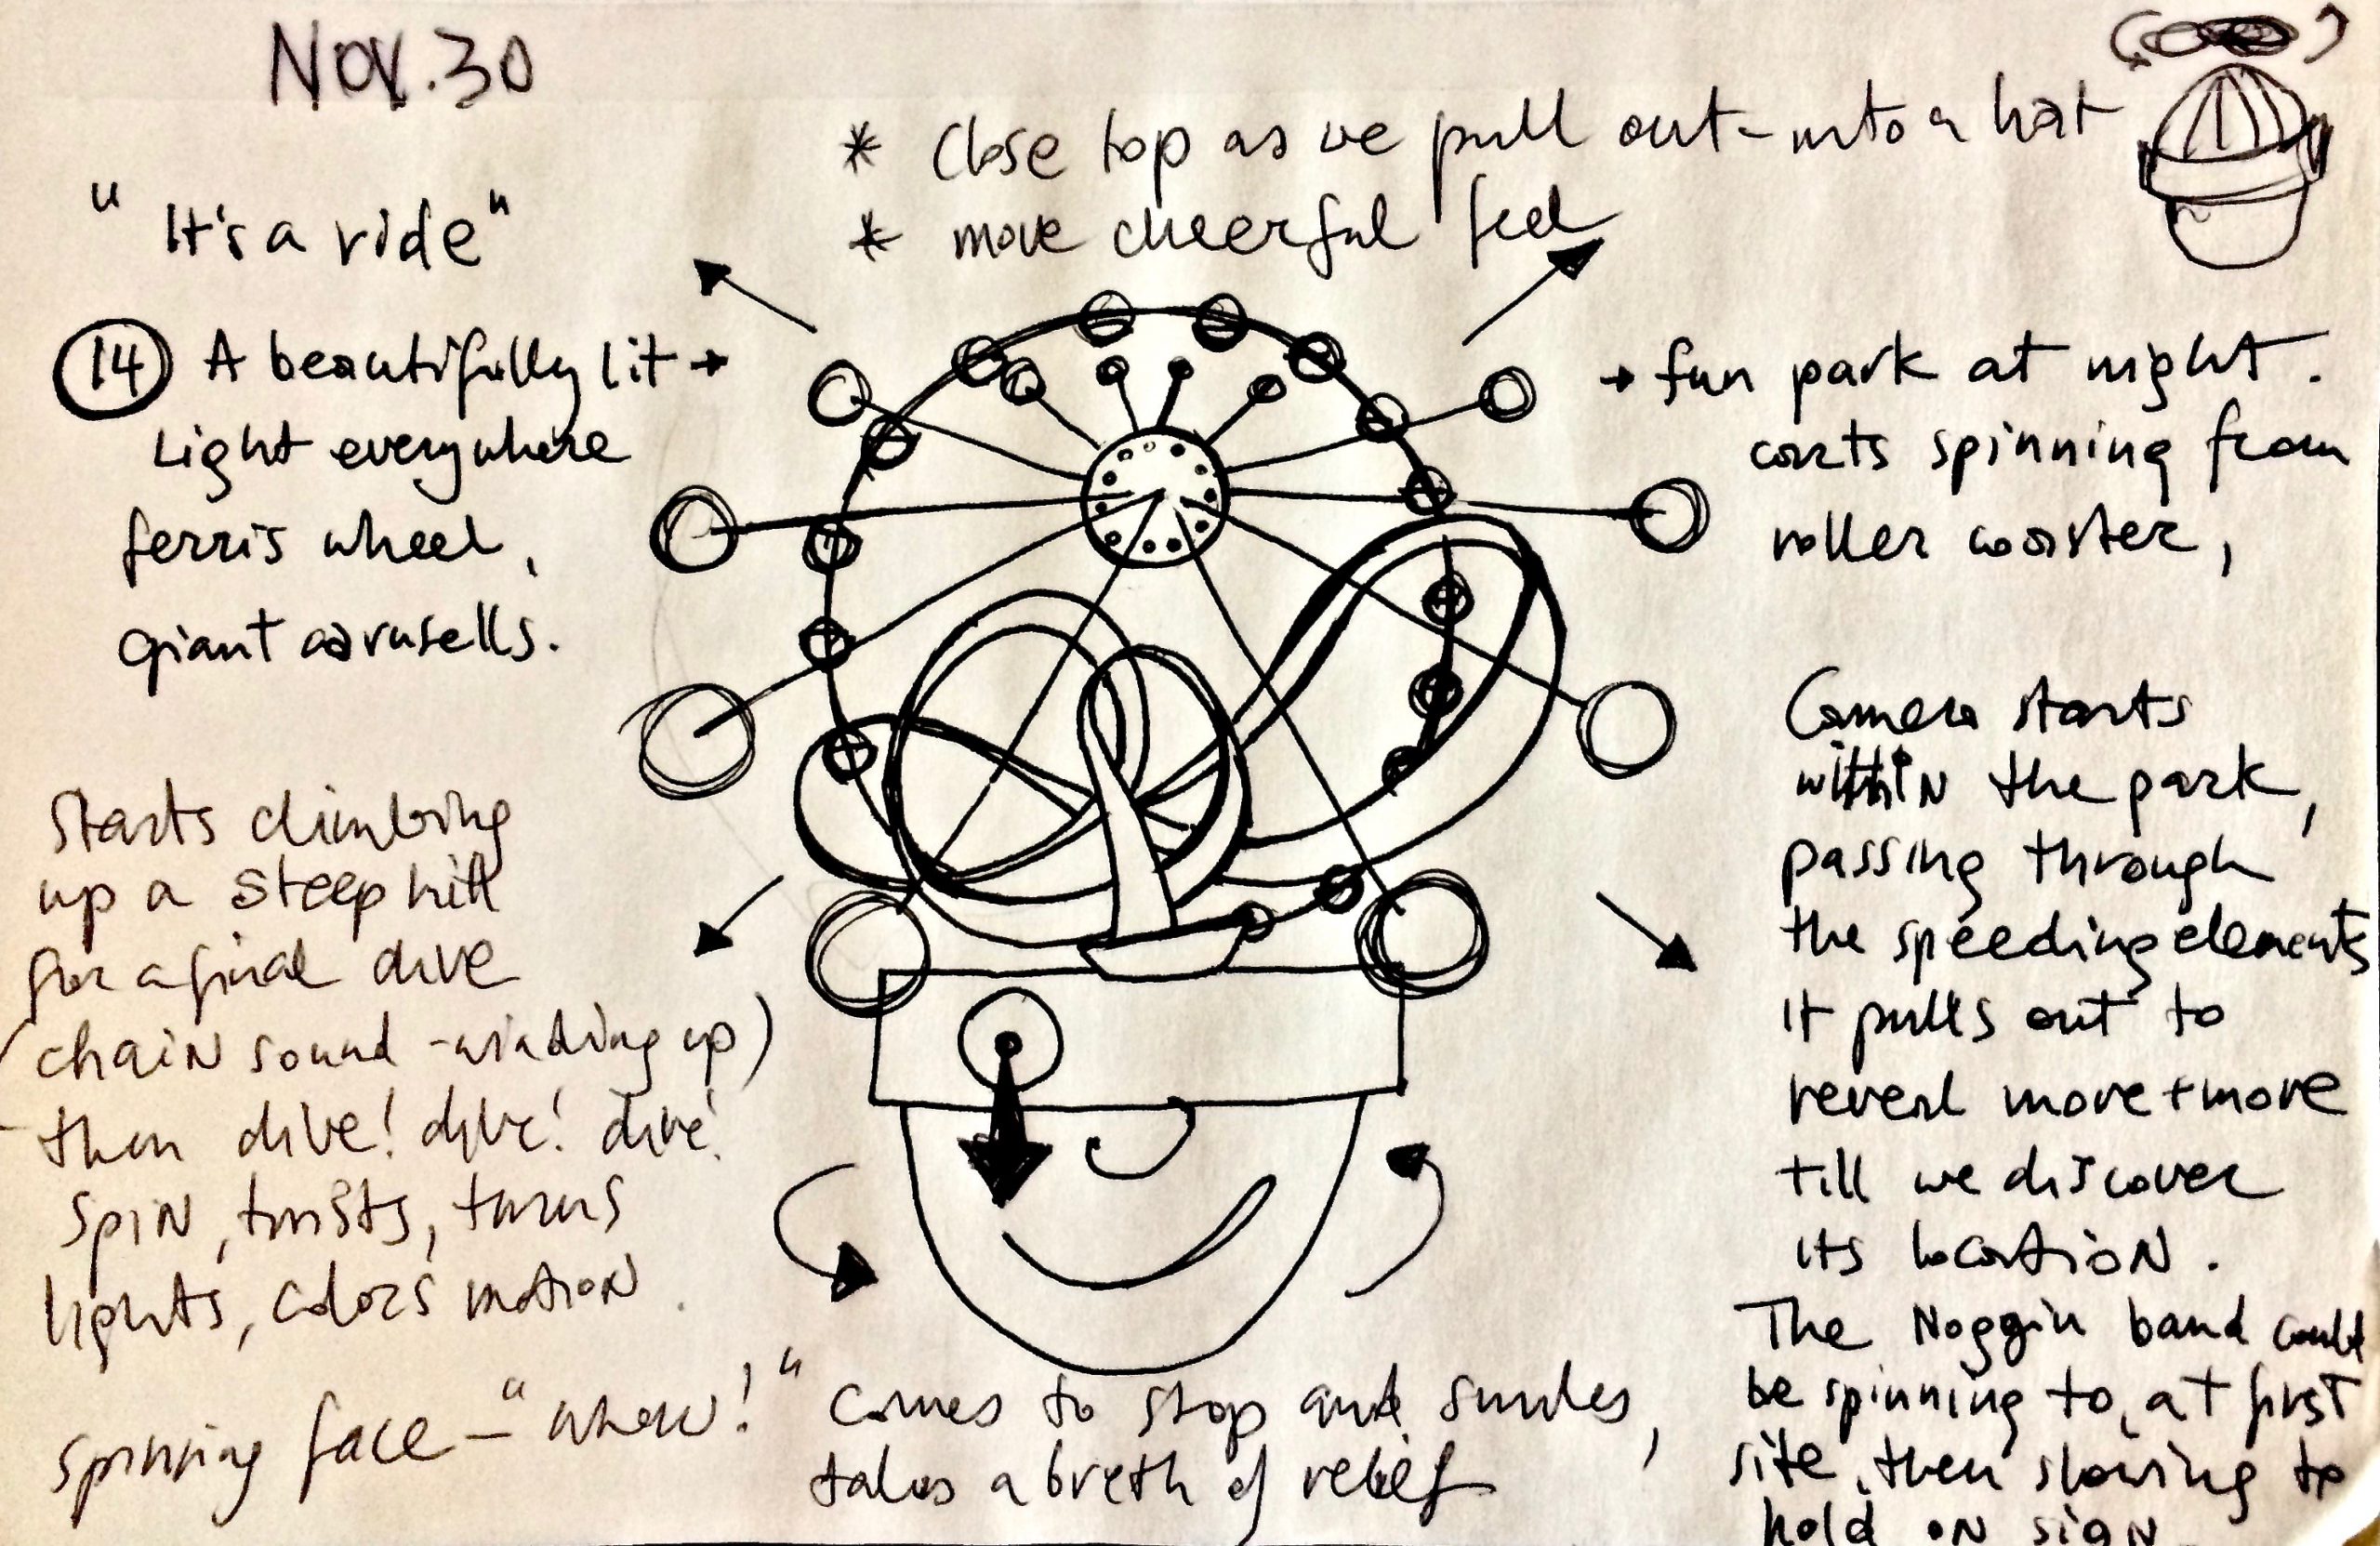 Nov. 30
* Close top as we pull out - into a hat
* more cheerful feel
"It's a ride"
14 A beautifully lit →
Light everywhere
ferris wheel,
giant carusells.
→ fun park at night.
carts spinning from
roller coaster,
Camera starts
within the park,
passing through
the speeding elements
it pulls out to
reveal more + more
till we discover
its location.
The Noggin band could
be spinning to, at first
site, then slowing to
hold on sign
Starts climbing
up a steep hill
for a final dive
(chain sound - winding up)
then dive! dive! dive!
spin, twists, turns
lights, colors motion.
spinning face - "whow!" comes to stop and smiles,
takes a breth of relief